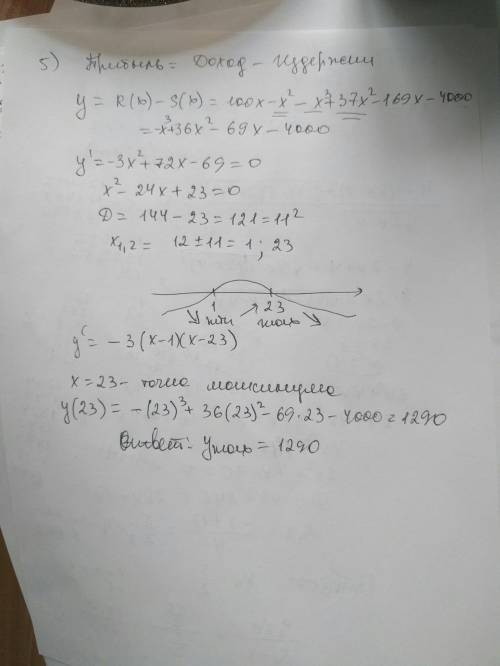 5) Прибыль = Доход - Издержки
y = R(x) - S(x) = 100x - x² - x³ + 37x² - 169x - 4000
= -x³ + 36x² - 69x - 4000
y' = -3x² + 72x - 69 = 0
x² - 24x + 23 = 0
D = 144 - 23 = 121 = 11²
x₁,₂ = 12 ± 11 = 1 ; 23
1 23
min max
y' = -3(x-1)(x-23)
x = 23 - точка максимума
y(23) = -(23)³ + 36(23)² - 69·23 - 4000 = 1290
Ответ: yмакс = 1290